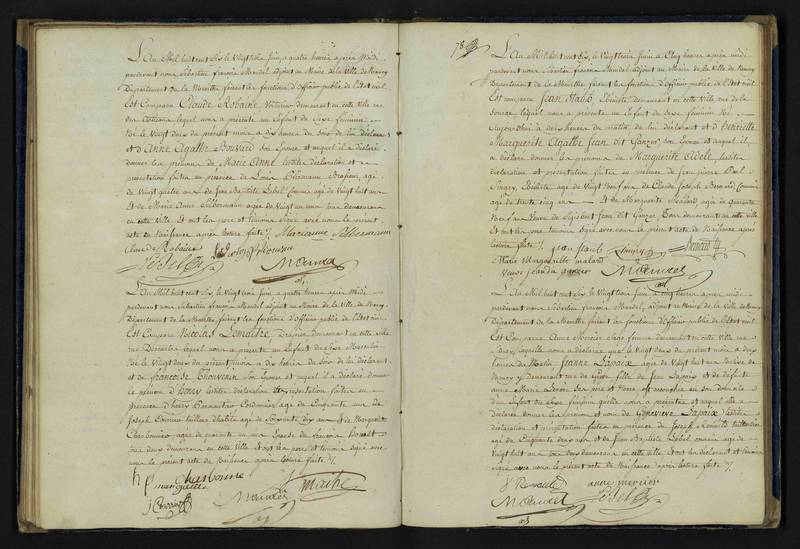 L'An Mil huit cent dix, le Vingt trois Juin, a quatre heures après Midi
pardevant nous Sébastien françois Mandel adjoint au Maire de la Ville de Nancy
Département de la Meurthe faisant les fonctions d'Officier public de l'Etat civil
Est Comparu Claude Robaine, Voiturier demeurant en cette Ville rue
des lequel nous a présenté un Enfant du Sexe féminin
Né le Vingt deux du présent mois a dix heures du soir de lui déclarant
et d'Anne Agathe Bouvard son Epouse et auquel il a déclaré
donner les prénoms de Marie Anne lesdites déclaration et
présentation faites en présence de Louis Brasseur, agé
de Vingt quatre ans de Jean Baptiste Lebel Commis agé de Vingt huit ans
Et de Marie Anne Silbermann agée de Vingt un ans tous demeurans
en cette Ville. Et ont les pere et temoins signés avec nous le présent
acte de Naissance après lecture faite. Marianne Silbermann
Claude Robaine
Lebel Mandel
L'An Mil huit cent dix, le Vingt trois Juin, a quatre heures après Midi
pardevant nous Sébastien françois Mandel adjoint au Maire de la Ville de Nancy,
Département de la Meurthe faisant les fonctions d'Officier public de l'Etat civil
Est Comparu Nicolas Lemaitre Drapier demeurant en cette Ville
rue lequel nous a présenté un Enfant du Sexe Masculin
Né le Vingt deux du présent mois a dix heures du Soir de lui déclarant
et de françoise Thouvenin son Epouse et auquel il a déclaré donner
le prénom d'Henry lesdites déclaration et présentation faites en
présence d'henry Cordonnier agé de Cinquante ans de
Joseph tailleur d'habits agé de Soixante dix ans & de Marguerite
Charbonnier agée de quarante un ans Epouse de françois
tous deux demeurans en cette Ville, et ont les pere et temoins signés avec
nous le présent acte de Naissance après lecture faite.
Charbonne
marguerite
Mandel maitre
78
L'An Mil huit cent dix, le Vingt trois Juin a Cinq heures après midi
pardevant nous Sébastien françois Mandel adjoint au Maire de la Ville de Nancy
Département de la Meurthe faisant les fonctions d'Officier public de l'Etat civil
Est comparu Jean Staub, Ebéniste demeurant en cette Ville rue de la
Source, lequel nous a présenté un Enfant du sexe féminin Né
Aujourd'hui a deux heures du matin de lui déclarant et d'Henriette
Marguerite Agathe Jean dit Ganzer, son Epouse et auquel il
a déclaré donner les prénoms de Marguerite Adèle, lesdites
déclaration et présentation faites en présence de Jean pierre Paul
Ebéniste agé de Vingt neuf ans de Claude Joseph Bernard, Commis
agé de trente cinq ans Et de Marguerite Malard agée de Cinquante
neuf ans Veuve de Jean dit Ganzer Tous demeurant en cette Ville
Et ont les pere et temoins signés avec nous le présent acte de Naissance après
lecture faite. jean staub Bernard
Marie Margueritte malard
veuve jean da ganzer Mandel
L'An Mil huit cent dix, le Vingt trois Juin, a Cinq heures après midi
pardevant nous Sébastien françois Mandel, adjoint au Maire de la Ville de Nancy
Département de la Meurthe faisant les fonctions d'Officier public de l'Etat civil
Est Comparue Anne Mercier Sage femme demeurant en cette Ville rue
laquelle nous a déclaré que le Vingt deux du présent mois a deux
heures du Matin Jeanne Lapaix agée de Vingt huit ans Native de
Nancy y demeurant rue de fille de Jean Lapaix et de défunte
Anne Marie ses pere et Mere est accouchée en son domicile
d'un Enfant du Sexe féminin quelle nous a présenté et auquel elle a
déclaré donner les prénom et nom de Geneviève Lapaix, lesdites
déclaration et présentation faites en présence de Joseph
agé de Cinquante deux ans et de Jean Baptiste Lebel commis agé de
Vingt huit ans tous deux demeurans en cette Ville, et ont les declarante et temoins
signés avec nous le présent acte de Naissance après lecture faite.
anne mercier
Mandel Lebel